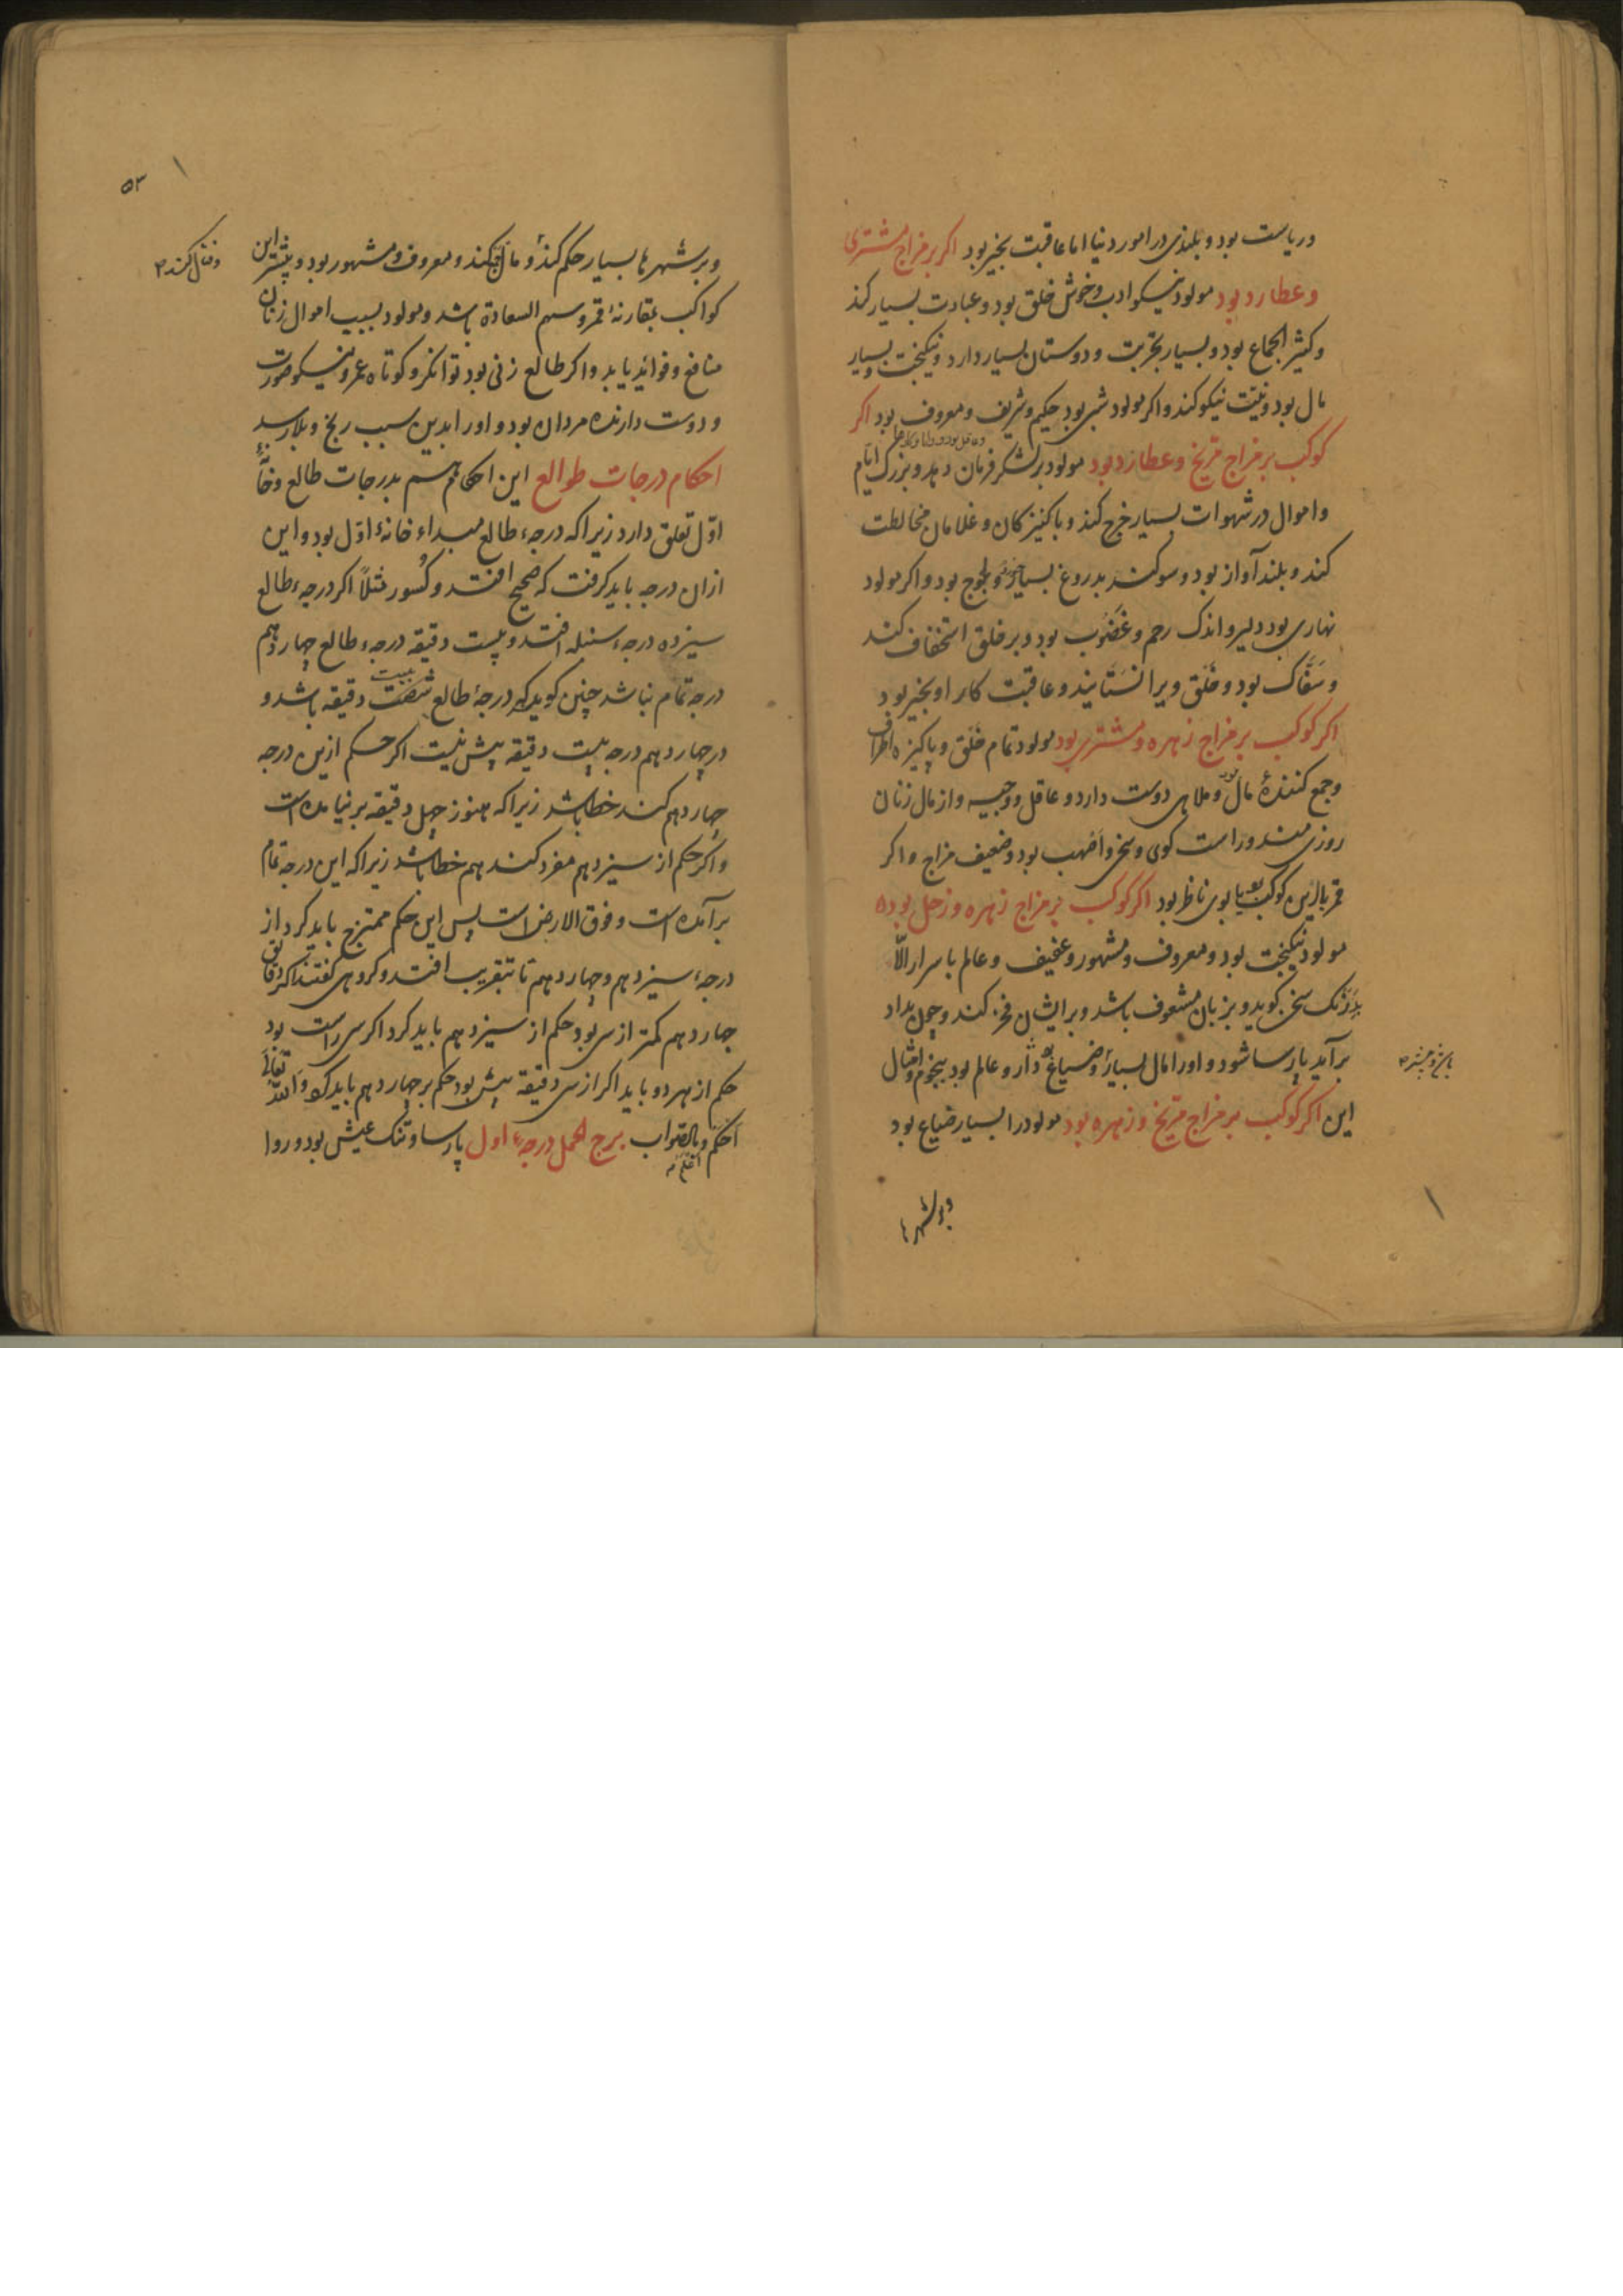 در ریاست بود و بلندی در امور دنیا اما عاقبت بخیر بود اکر بر مزاج مشتری
و عطارد بود مولود نیکو ادب و خوش خلق بود و عبادت بسیار کند
و کثیر الجماع بود و بسیار تجربت و دوستان بسیار دارد و نیکبخت و بسیار
مال بود و نیّت نیکو کند و اکر مولود شبی بود حکیم و شریف و معروف بود اکر
کوکب بر مزاج مریخ و عطارد بود مولود بر لشکر فرمان دهد و بزرک ایام
و اموال در شهوات بسیار خرج کند و با کنیزکان و غلامان مخالطت
کند و بلند آواز بود و سوکند بدروغ بسیار خورد و لجوج بود و اکر مولود
نهاری بود دلیر و اندک رحم و غضوب بود و بر خلق استخفاف کند
و سفّاک بود و خلق ویرا نستایند و عاقبت کار او بخیر بود
اکر کوکب بر مزاج زهره و مشتری بود مولود تمام خلق و پاکیزه اطراف
و جمع کنندهٔ مال بود و ملاهی دوست دارد و عاقل و وجیه و از مال زنان
روزی مند و راست کوی و سخی و اصهب بود و ضعیف مزاج و اکر
قمر با این کوکب بود یا بوی ناظر بود اکر کوکب بر مزاج زهره و زحل بوده
مولود نیکبخت بود و معروف و مشهور و عفیف و عالم باسرار الّا
بدرنک سخن کوید و بزبان مشعوف باشد و بر ایشان فخر کند و چون بداد
برآید پارسا شود و اورا مال بسیار و ضیاع بود دار و عالم بود بنجوم و امثال
این اکر کوکب بر مزاج مریخ و زهره بود مولود را بسیار ضیاع بود
و بر شهرها
۵۳
و بر شهرها بسیار حکم کند و مال کند و معروف و مشهور بود و بیشتر این
و قتال کند
کواکب بمقارنهٔ قمر و سهم السعادة باشد و مولود بسبب اموال زنان
منافع و فواید یابد و اکر طالع زنی بود توانکر و کوتاه عمر و نیکو صورت
و دوست دارنده مردان بود و اورا بدین سبب رنج و بلا رسد
احکام درجات طوالع این احکام هم بدرجات طالع و خانهٔ
اوّل تعلق دارد زیرا که درجهٔ طالع مبداء خانهٔ اوّل بود و این
از ان درجه باید کرفت که صحیح افتد و کسور مثلاً اکر درجهٔ طالع
سیزده درجهٔ سنبله افتد و بیست دقیقه درجهٔ طالع چهاردهم
درجه تمام نباشد چنین کوید که درجهٔ طالع شصت دقیقه باشد و
در چهاردهم درجه بیست دقیقه بیش نیست اکر حکم ازین درجه
چهاردهم کند خطا باشد زیرا که هنوز چهل دقیقه برنیامده است
و اکر حکم از سیزدهم مفرد کند هم خطا باشد زیرا که این درجه تمام
برآمده است و فوق الارض است پس این حکم ممتزج باید کرد از
درجهٔ سیزدهم و چهاردهم تا بتقریب افتد و کروهی کفتند اکر دقایق
چهاردهم کمتر از سی بود حکم از سیزدهم باید کرد اکر سی راست بود
حکم از هر دو باید اکر از سی دقیقه بیش بود حکم بر چهاردهم باید کرد و الله تعالی
احکم و بالصواب برج الحمل درجهٔ اول پارسا و تنک عیش بود و روا
اعلم